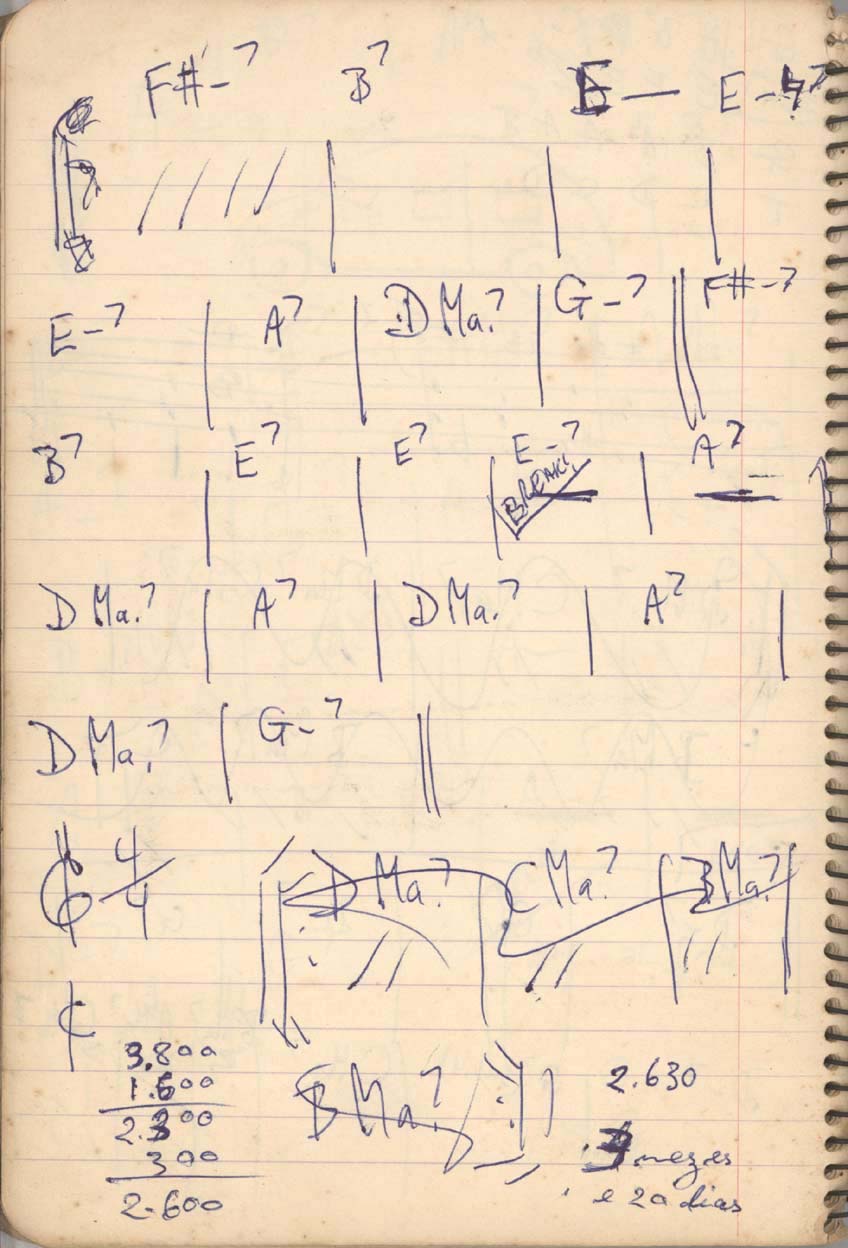 F#-7 B7 E— E-7
E-7 A7 D Ma.7 G-7 F#-7
B7 E7 E7 E-7 A7
BREAK
D Ma.7 A7 D Ma.7 A7
D Ma.7 G-7
4/4 D Ma.7 C Ma.7 B Ma.7
¢
B Ma.7
3.800
1.600
2.300
300
2.600
2.630
3 mezes
e 20 dias